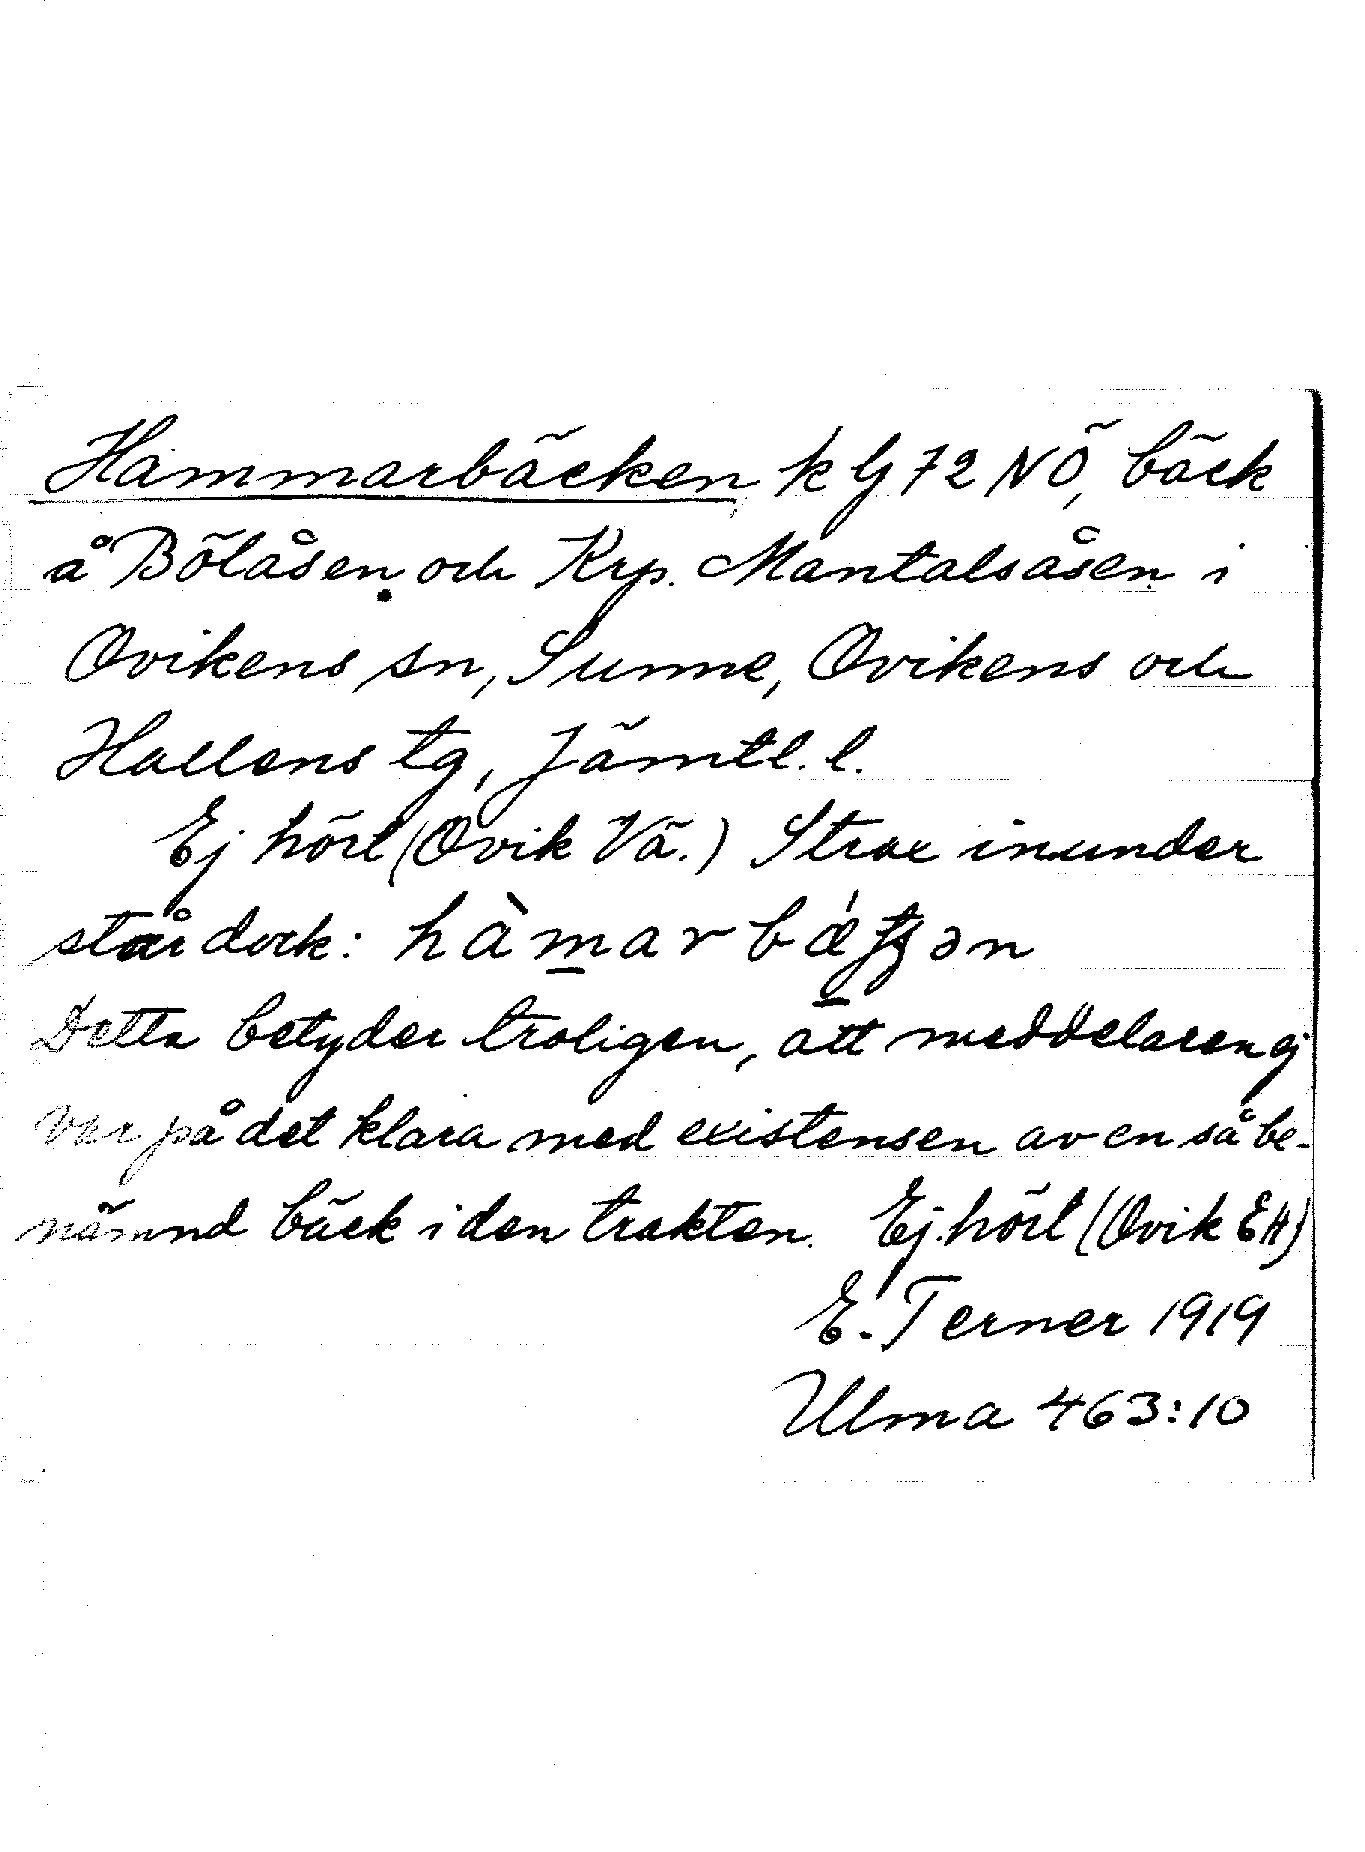 Hammarbäcken k G 72 NÖ, bäck
å Bölåsen och Krp. Mantalsåsen i
Ovikens sn, Sunne, Ovikens och
Hallens tg, Jämtl. l.
Ej hört (Ovik Vä.) Strax inunder
står dock: hàmarbǽtʂən
Detta betyder troligen, att meddelaren ej
var på det klara med existensen av en så be-
nämnd bäck i den trakten. Ej hört (Ovik EH)
E. Terner 1919
Ulma 463:10